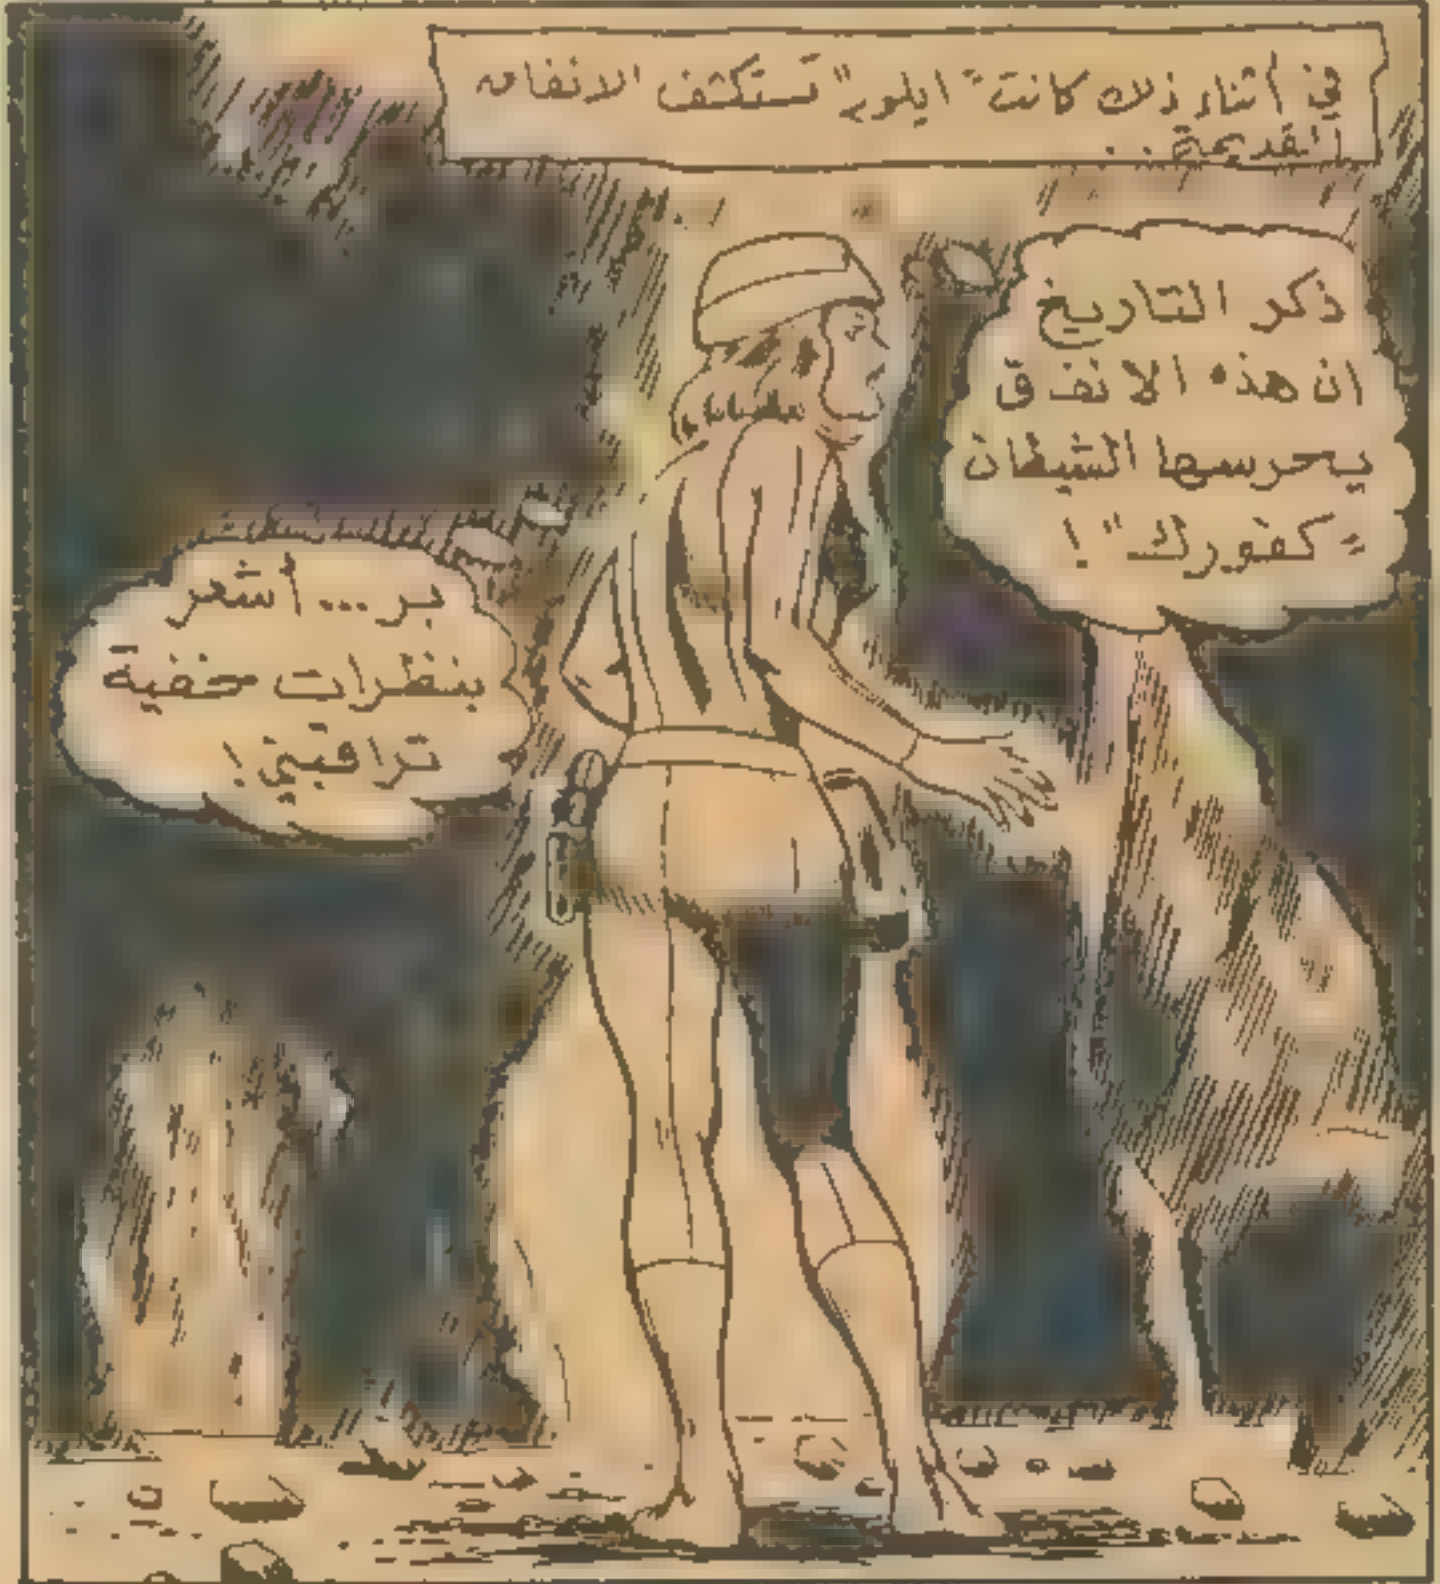 في أثناء ذلك كانت "ايلور" تستكشف الانفاق
القديمة..
ذكر التاريخ
ان هذه الانفاق
يحرسها الشيطان
"كفورك"!
بر... أشعر
بنظرات خفية
تراقبني!